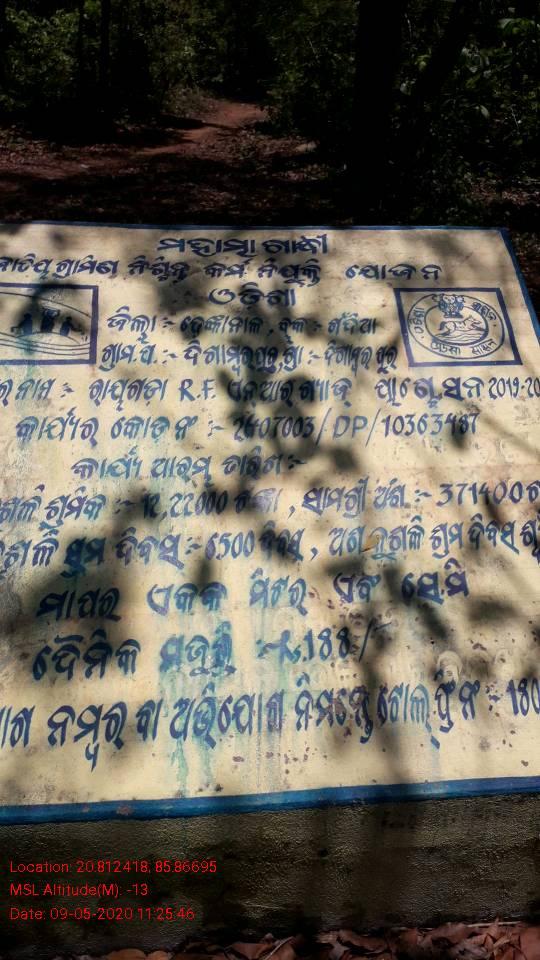 ମହାତ୍ମା ଗାନ୍ଧୀ
ଜାତିୟ ଗ୍ରାମିଣ ନିଶ୍ଚିତ କର୍ମ ନିଯୁକ୍ତି ଯୋଜନା
ଓଡିଶା
ଜିଲ୍ଲା :- ଢେଙ୍କାନାଳ, ବ୍ଲକ :- ଗଁଦିଆ
ଗ୍ରାମ.ପଂ :- ଦିଗାମ୍ବରପୁର, ଗ୍ରା :- ଦିଗାମ୍ବରପୁର
ର ନାମ :- ରାୟଗଡ଼ା R.F. ଏନଆର 2019-20
କାର୍ଯ୍ୟର କୋଡ ନଂ :- 2407003/DP/10363487
କାର୍ଯ୍ୟ ଆରମ୍ଭ ତାରିଖ :-
କୁଶଳି ଶ୍ରମିକ :- 12,22000 ଟଙ୍କା, ସାମଗ୍ରୀ ଅଂଶ :- 371400
କୁଶଳି ଶ୍ରମ ଦିବସ :- 6500 ଦିବସ, ଅଣକୁଶଳି ଶ୍ରମ ଦିବସ
ମାପର ଏକକ ମିଟର ଏବଂ ସେମି
ଦୈନିକ ମଜୁରୀ :- 188/-
ନମ୍ବର ବା ଅଭିଯୋଗ ନିମନ୍ତେ ଟୋଲ୍ ଫ୍ରି ନଂ - 180
Location: 20.812418, 85.86695
MSL Altitude(M): -13
Date: 09-05-2020 11:25:46